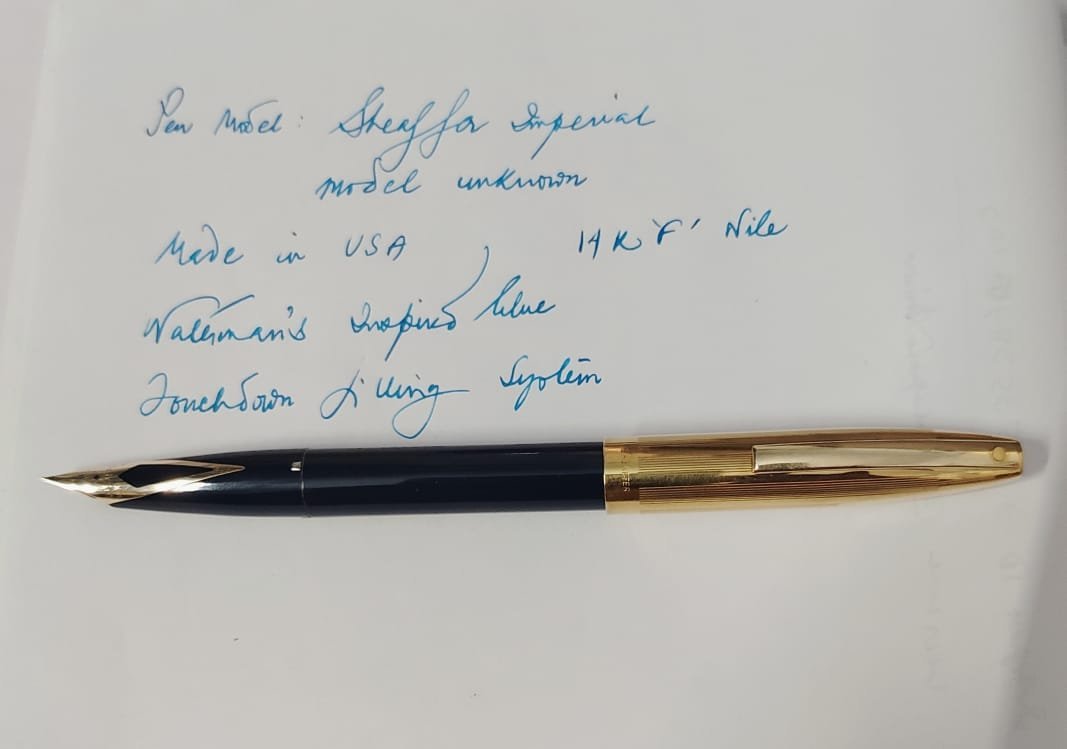 Pen Model: Sheaffer Imperial
model unknown
Made in USA 14K 'F' Nile
Waterman's Inspired blue
Touchdown filling System